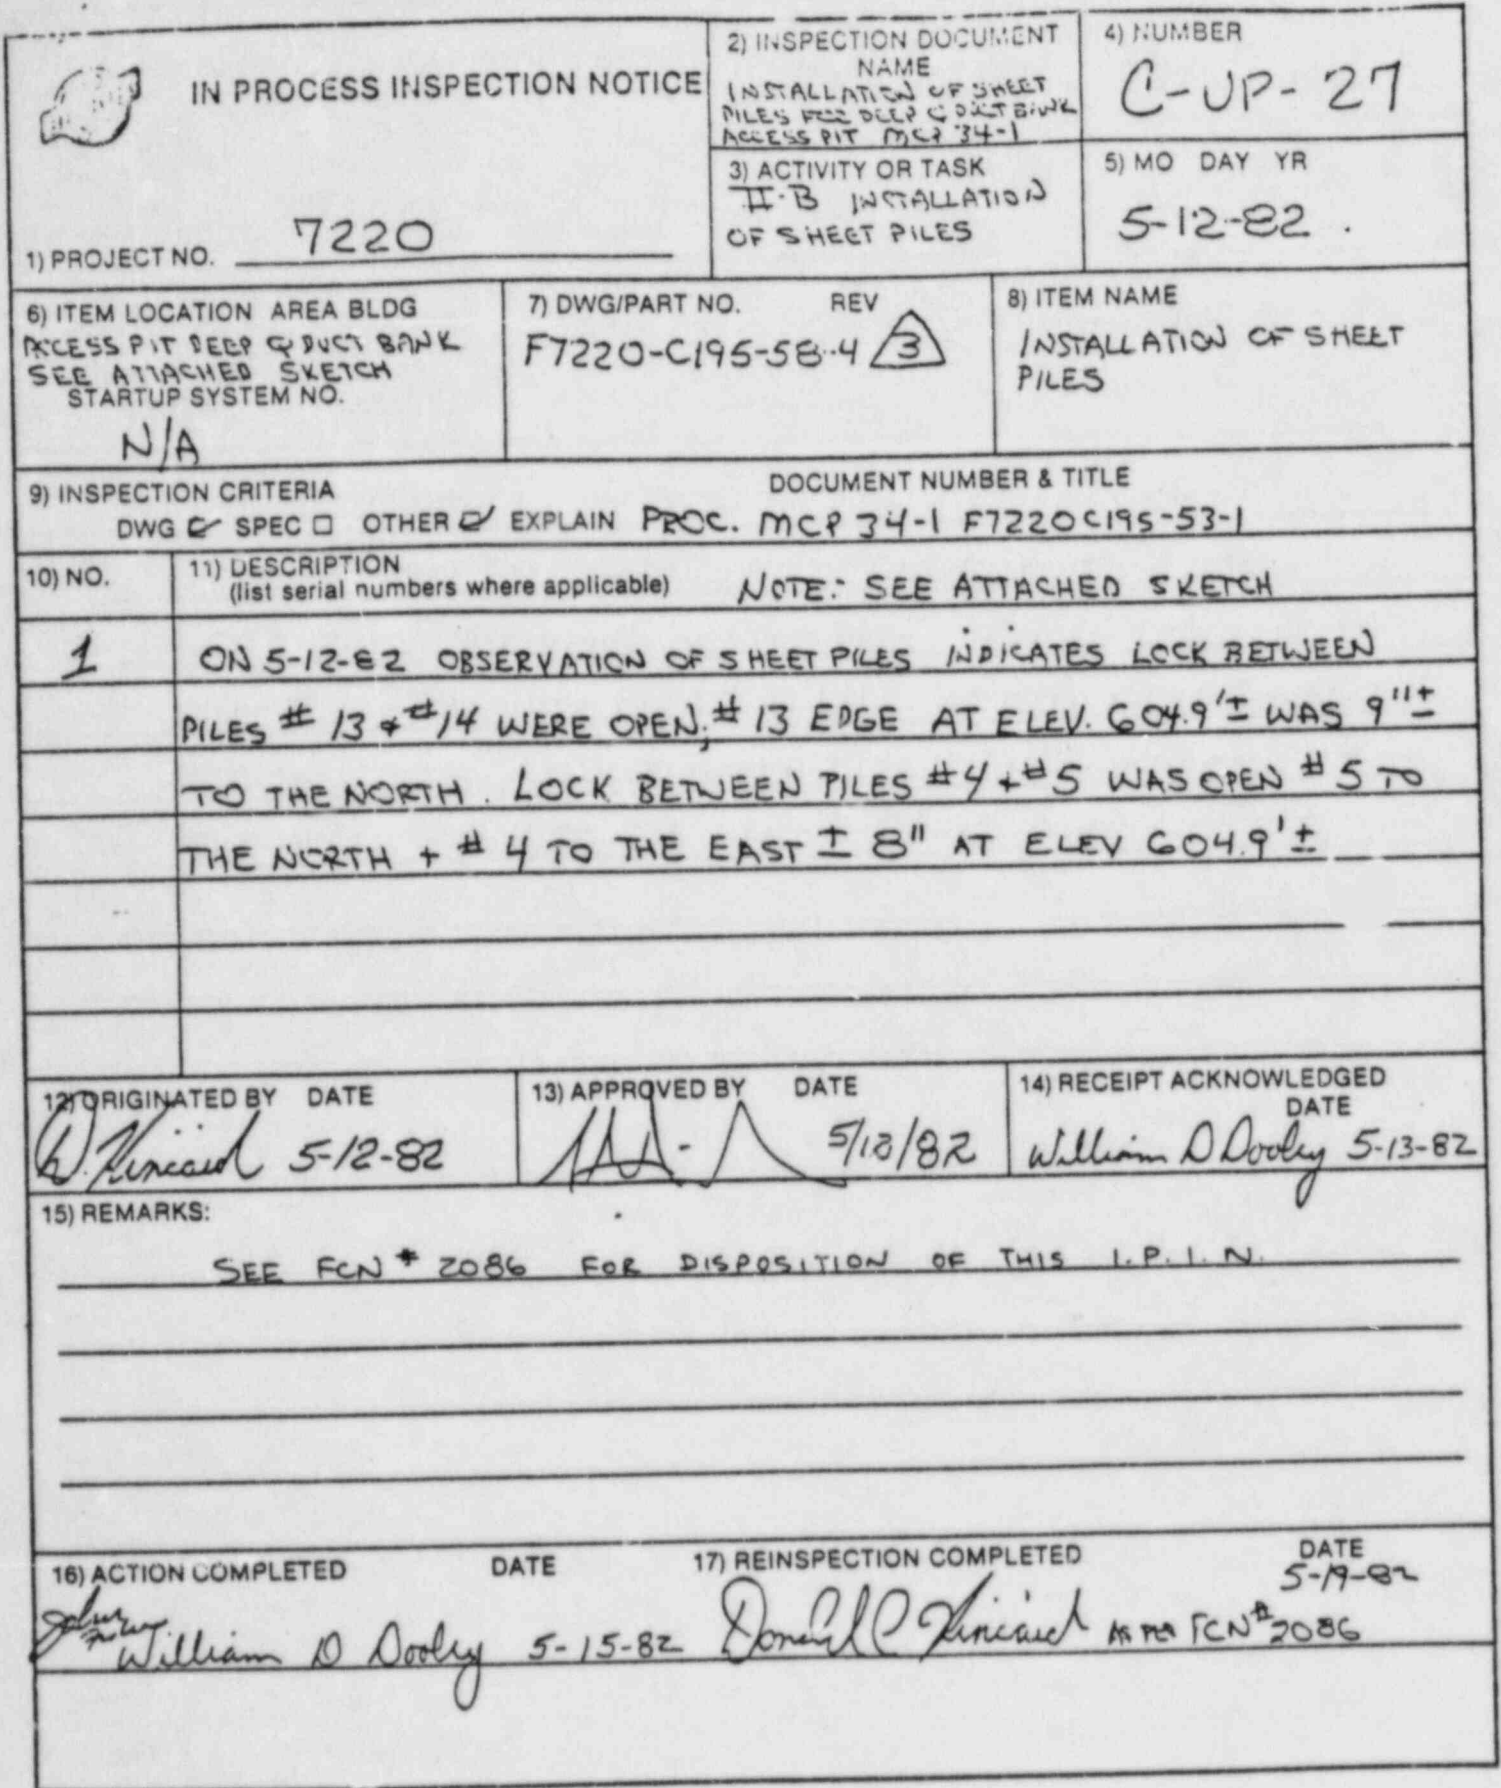 IN PROCESS INSPECTION NOTICE
1) PROJECT NO. 7220
2) INSPECTION DOCUMENT
NAME
INSTALLATION OF SHEET
PILES FOR DEEP Q DUCT BANK
ACCESS PIT MCP 34-1
3) ACTIVITY OR TASK
II-B INSTALLATION
OF SHEET PILES
4) NUMBER
C-UP-27
5) MO DAY YR
5-12-82
6) ITEM LOCATION AREA BLDG
ACCESS PIT DEEP Q DUCT BANK
SEE ATTACHED SKETCH
STARTUP SYSTEM NO.
N/A
7) DWG/PART NO. REV
F7220-C195-58-4 3
8) ITEM NAME
INSTALLATION OF SHEET
PILES
9) INSPECTION CRITERIA DOCUMENT NUMBER & TITLE
DWG ☑ SPEC ☐ OTHER ☑ EXPLAIN PROC. MCP 34-1 F7220C195-53-1
10) NO.
11) DESCRIPTION
(list serial numbers where applicable) NOTE: SEE ATTACHED SKETCH
1 ON 5-12-82 OBSERVATION OF SHEET PILES INDICATES LOCK BETWEEN
PILES # 13 + #14 WERE OPEN; # 13 EDGE AT ELEV. 604.9'± WAS 9"±
TO THE NORTH. LOCK BETWEEN PILES #4 + #5 WAS OPEN #5 TO
THE NORTH + # 4 TO THE EAST ± 8" AT ELEV 604.9'±
12) ORIGINATED BY DATE
D. Kincaid 5-12-82
13) APPROVED BY DATE
5/12/82
14) RECEIPT ACKNOWLEDGED
DATE
William D Dooley 5-13-82
15) REMARKS:
SEE FCN # 2086 FOR DISPOSITION OF THIS I.P.I.N.
16) ACTION COMPLETED DATE
William D Dooley 5-15-82
17) REINSPECTION COMPLETED DATE
5-19-82
Donald C Kincaid AS PER FCN # 2086